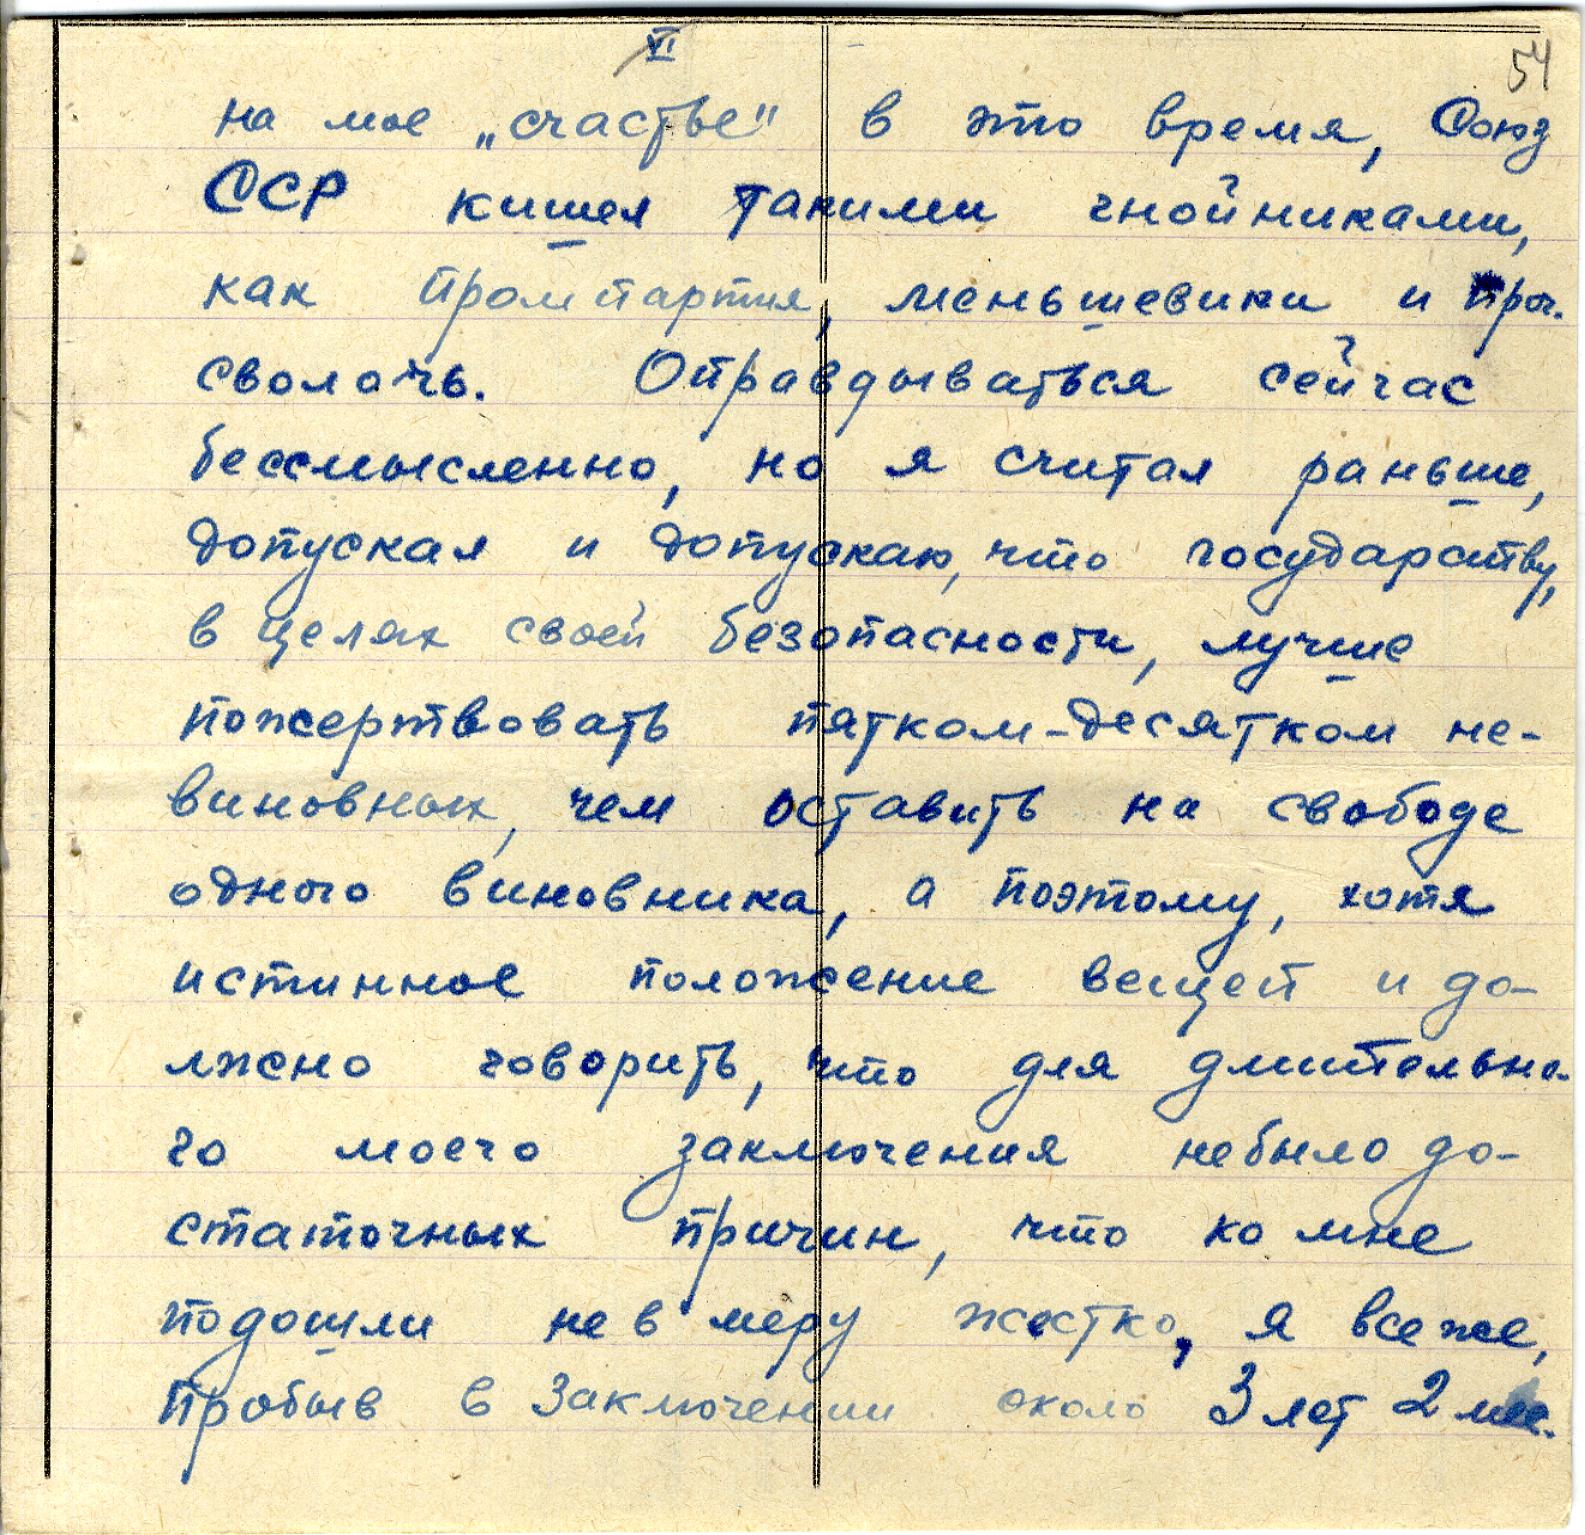 VI
54
на мое „счастье" в это время, Союз
ССР кишел такими гнойниками,
как Промпартия, меньшевики и проч.
сволочь. Оправдываться сейчас
бессмысленно, но я считал раньше,
допускал и допускаю, что государству,
в целях своей безопасности, лучше
пожертвовать пятком-десятком не-
виновных, чем оставить на свободе
одного виновника, а поэтому, хотя
истинное положение вещей и до-
лжно говорить, что для длительно-
го моего заключения небыло до-
статочных причин, что ко мне
подошли не в меру жестко, я все же,
пробыв в заключении около 3 лет 2 мес.